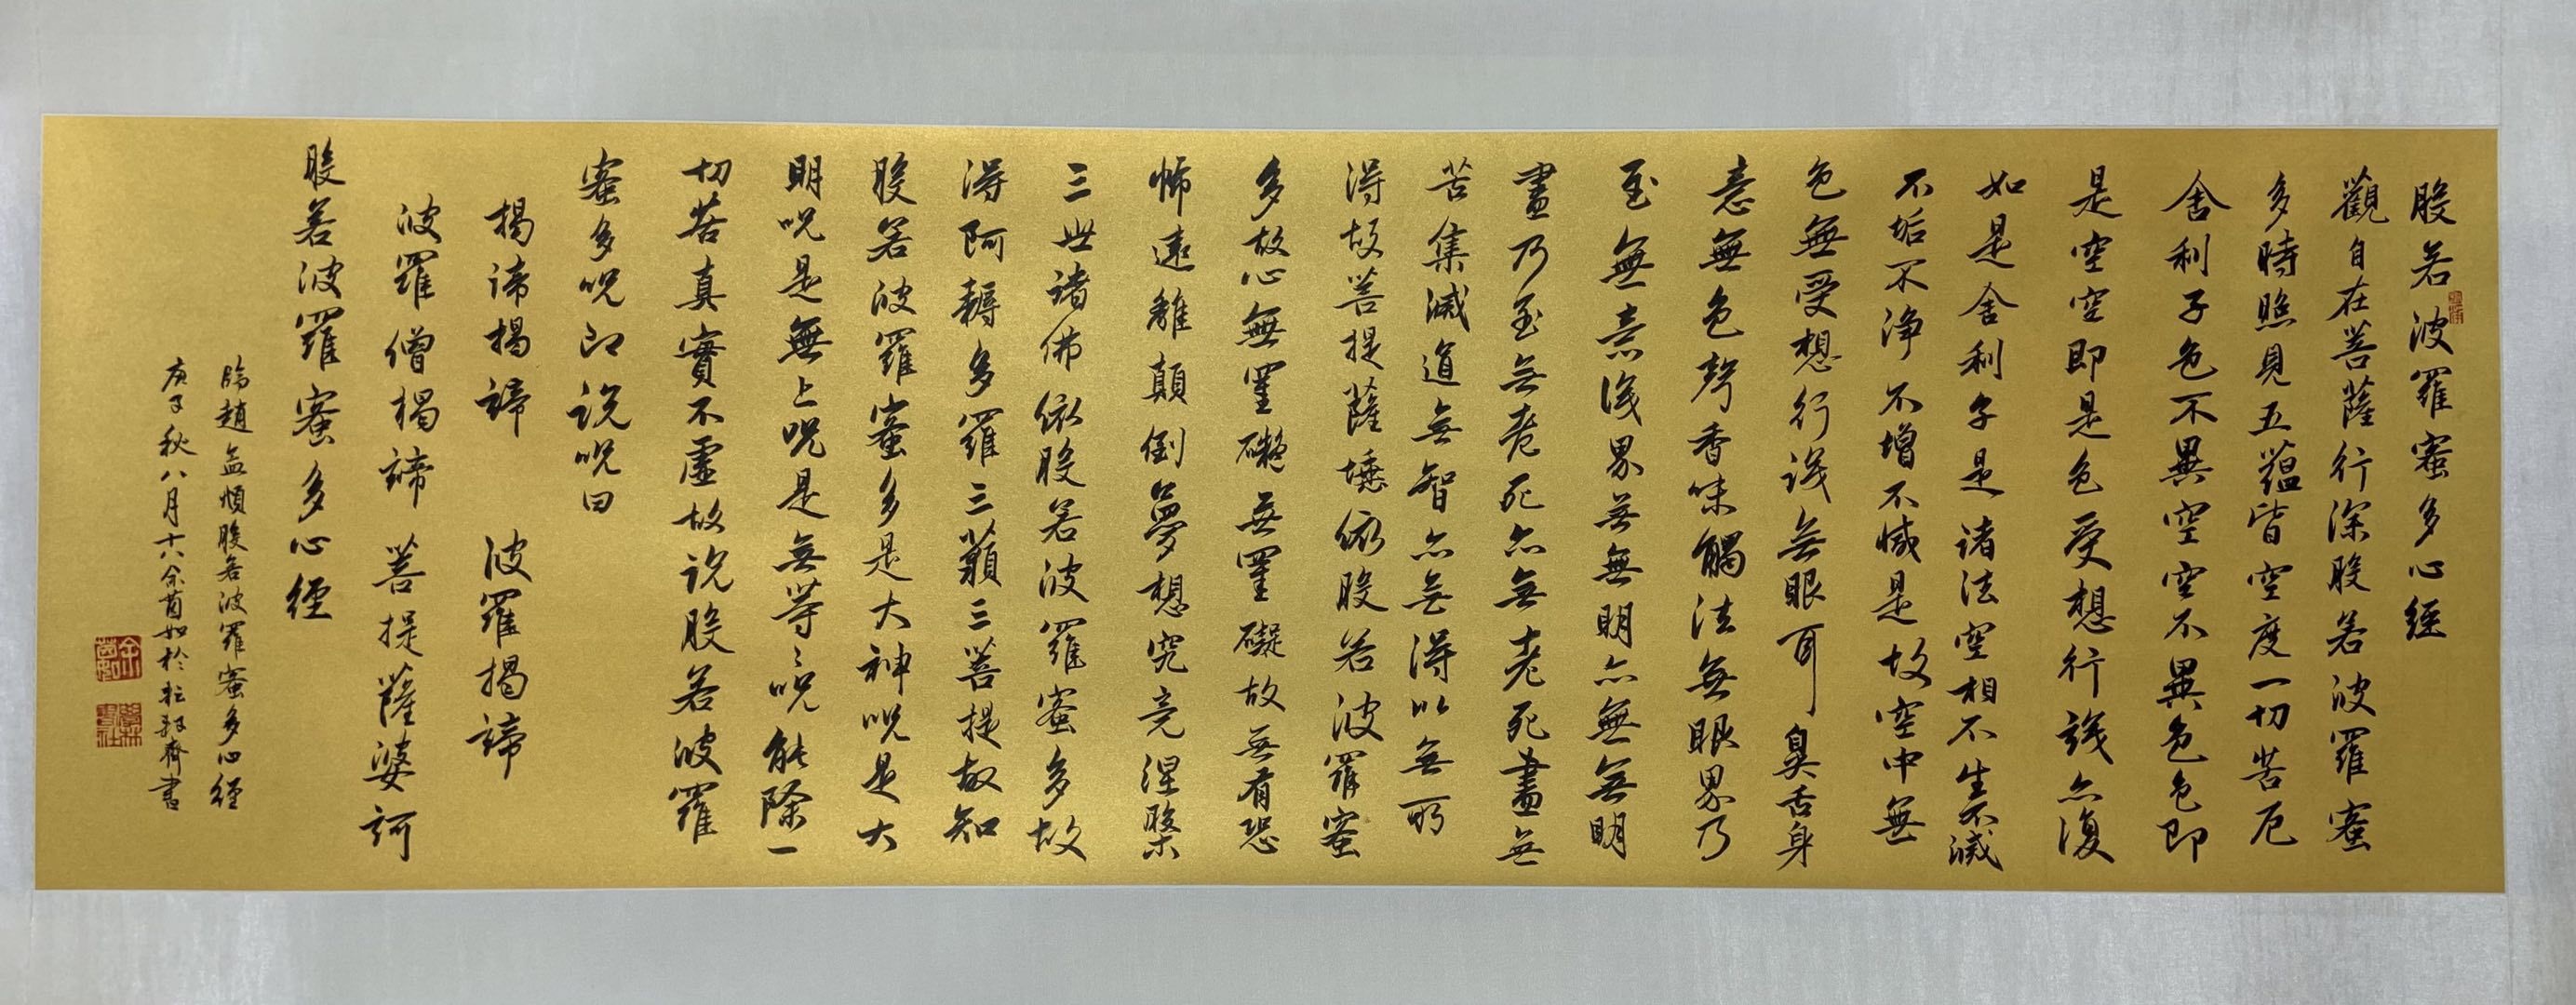 般若波羅蜜多心經
觀自在菩薩行深般若波羅蜜
多時照見五蘊皆空度一切苦厄
舍利子色不異空空不異色色即
是空空即是色受想行識亦復
如是舍利子是諸法空相不生不滅
不垢不淨不增不減是故空中無
色無受想行識無眼耳鼻舌身
意無色聲香味觸法無眼界乃
至無意識界無無明亦無無明
盡乃至無老死亦無老死盡無
苦集滅道無智亦無得以無所
得故菩提薩埵依般若波羅蜜
多故心無罣礙無罣礙故無有恐
怖遠離顛倒夢想究竟涅槃
三世諸佛依般若波羅蜜多故
得阿耨多羅三藐三菩提故知
般若波羅蜜多是大神咒是大
明咒是無上咒是無等々咒能除一
切苦真實不虛故說般若波羅
蜜多咒即說咒曰
揭諦揭諦 波羅揭諦
波羅僧揭諦 菩提薩婆訶
般若波羅蜜多心經
臨趙孟頫般若波羅蜜多心經
庚子秋八月十八余茵如於 齋書